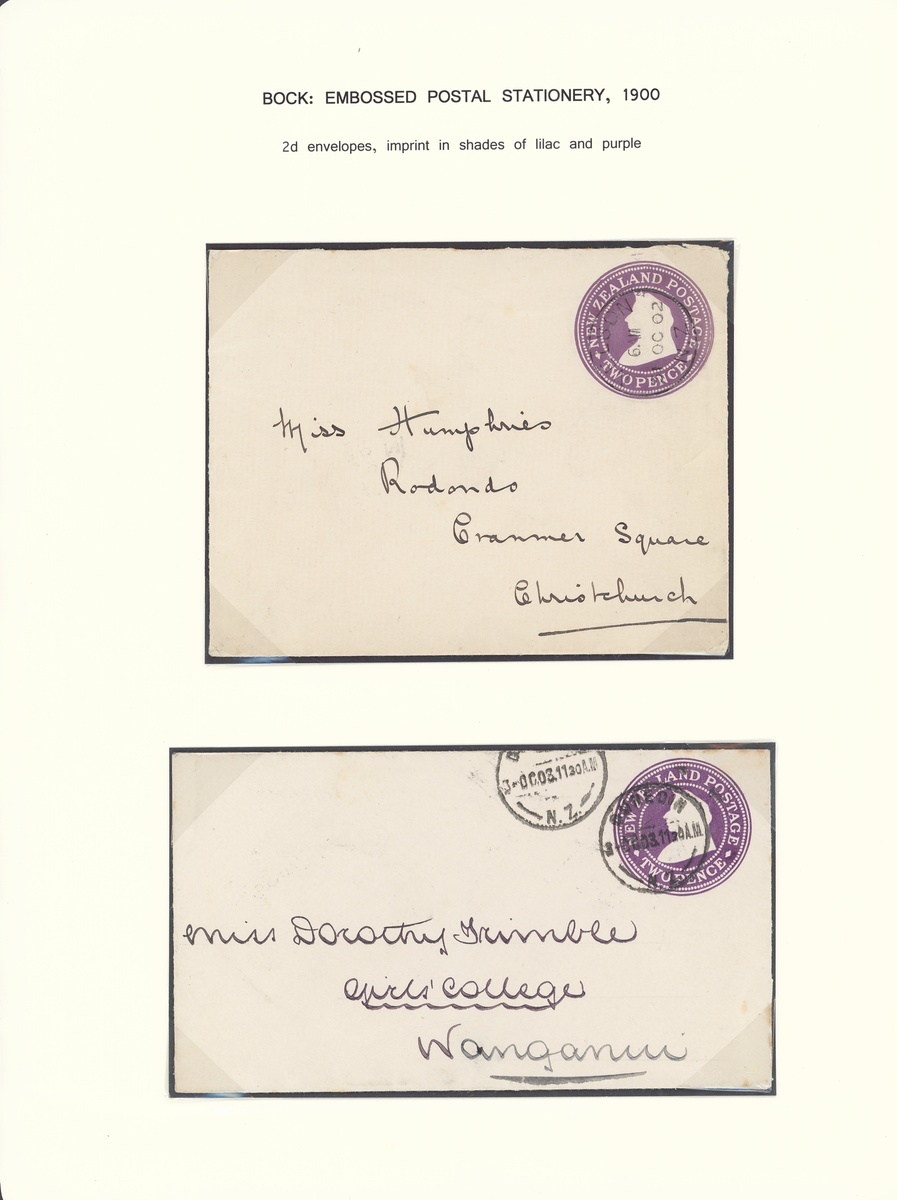 BOCK: EMBOSSED POSTAL STATIONERY, 1900
2d envelopes, imprint in shades of lilac and purple
NEW ZEALAND POSTAGE
TWO PENCE
OC 02
Miss Humphries
Rodondo
Cranmer Square
Christchurch
3-OC.03.11 30 A.M
N.Z.
NEW ZEALAND POSTAGE
TWO PENCE
DUNEDIN
3-OC.03.11 30 A.M.
Miss Dorothy Trimble
Girls' College
Wanganui